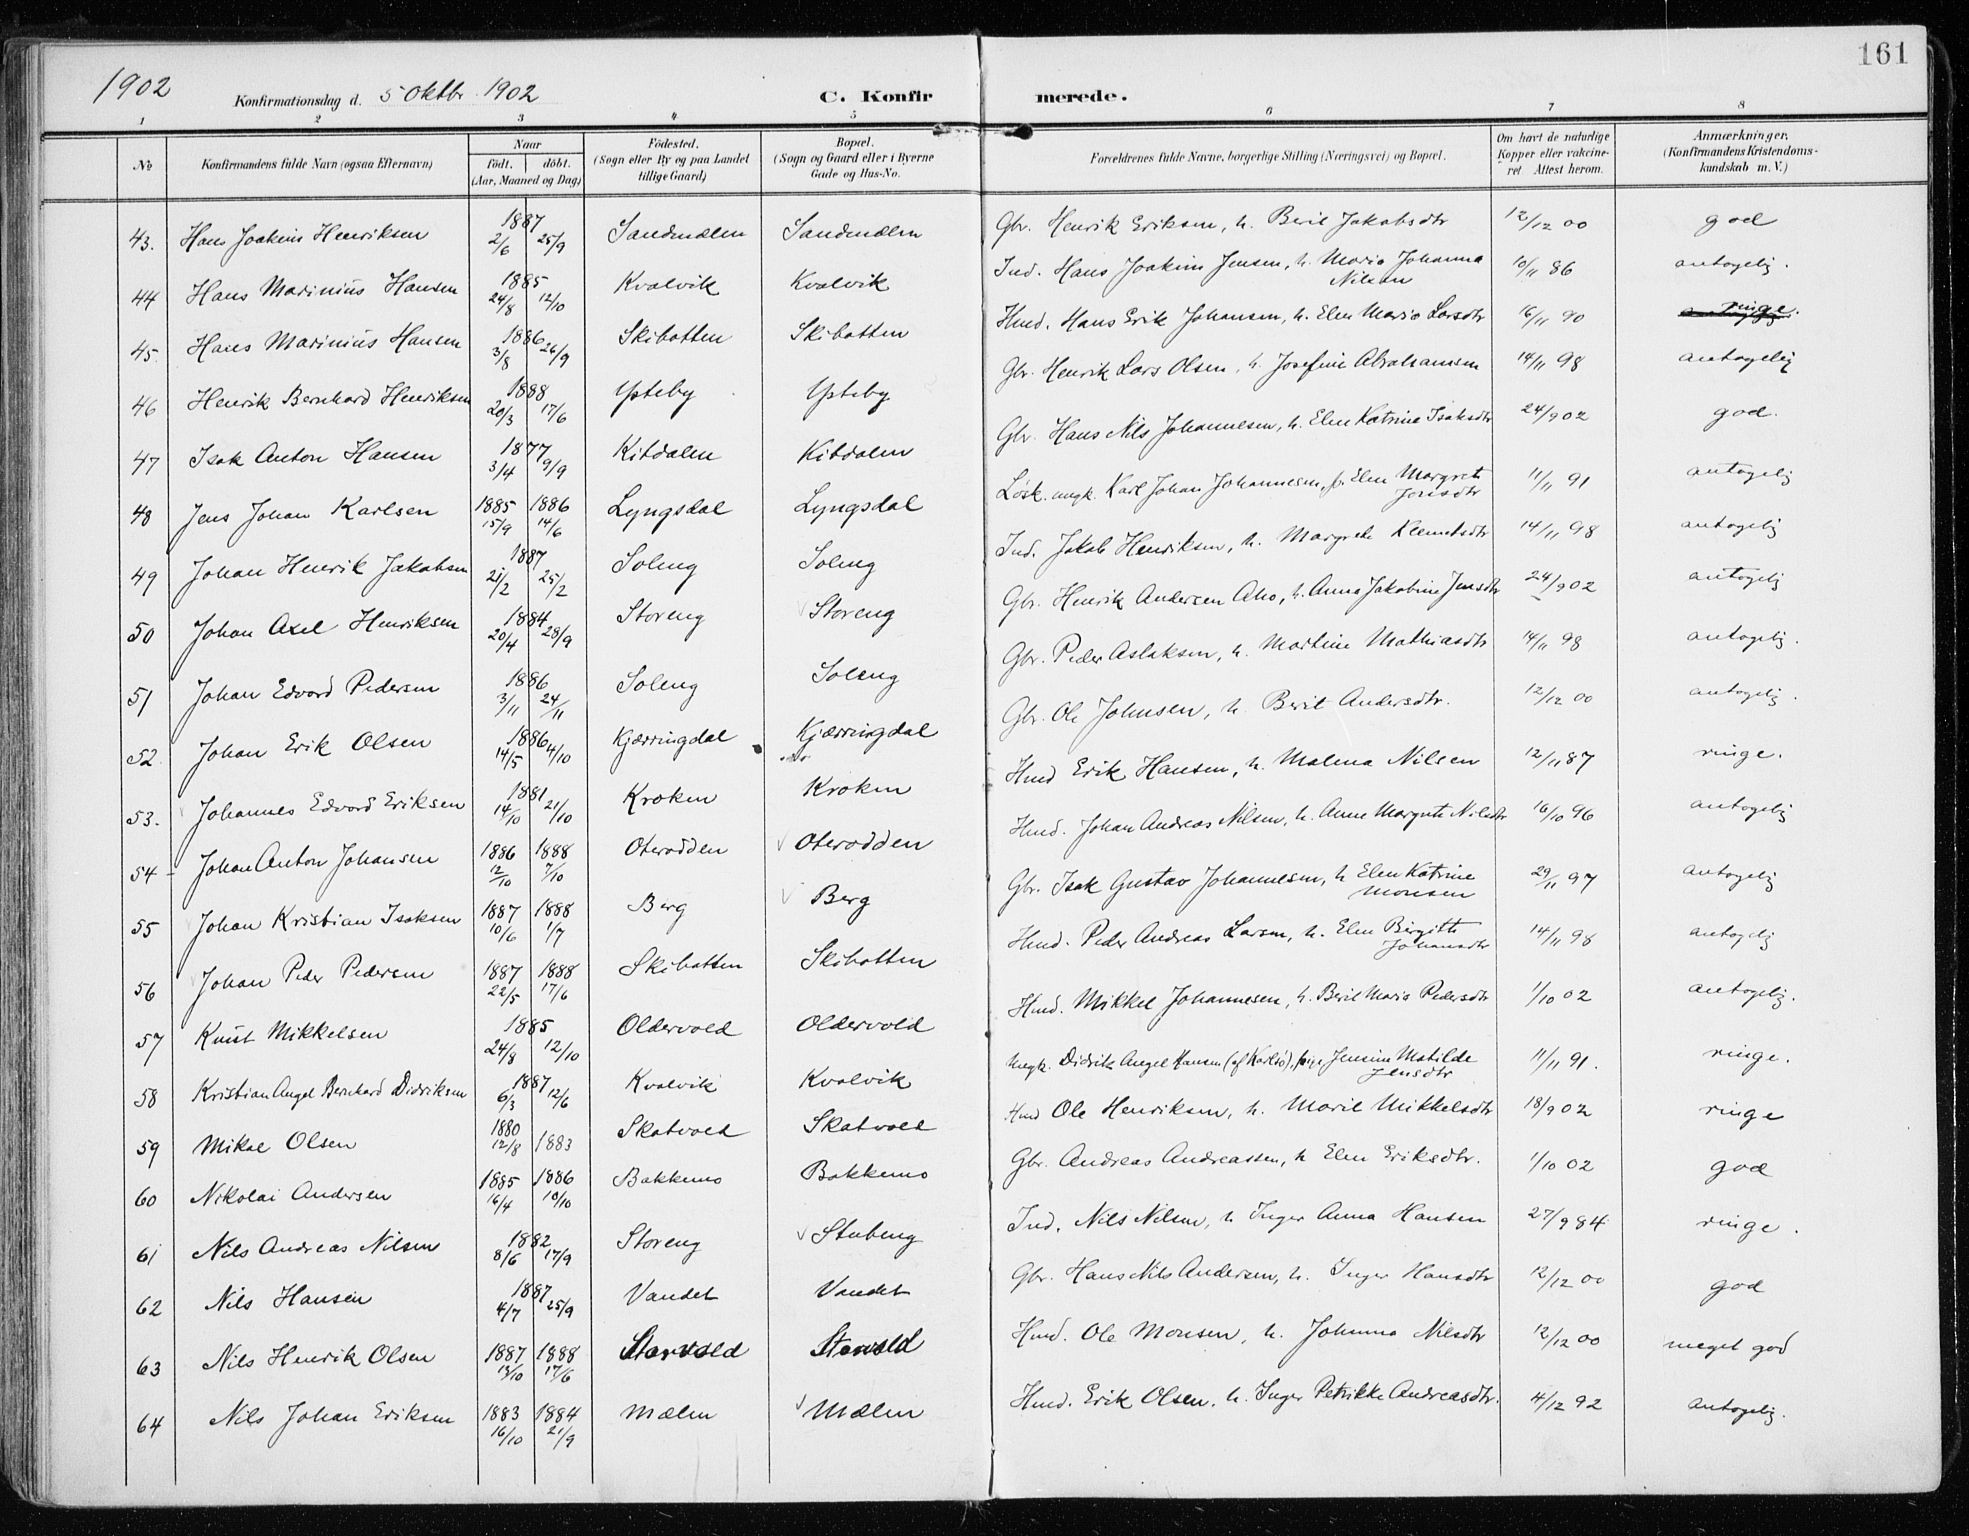 161
1902 Konfirmationsdag d. 5 oktbr 1902 C. Konfir merede.
1 2 3 4 5 6 7 8
No Konfirmandens fulde Navn (ogsaa Efternavn) Naar født. døbt. (Aar, Maaned og Dag) Fødested. (Sogn eller By og paa Landet tillige Gaard) Bopæl. (Sogn og Gaard eller i Byerne Gade og Hus-No. Forældrenes fulde Navne, borgerlige Stilling (Næringsvei) og Bopæl. Om havt de naturlige Kopper eller vakcineret. Attest herom. Anmærkninger. (Konfirmandens Kristendomskundskab m. V.)
43. Hans Joakim Henriksen 1887 2/6 25/9 Sandmælen Sandmælen Gbr. Henrik Eriksen, h. Berit Jakobsdtr 12/12 00 god
44 Hans Marinius Hansen 1885 24/8 12/10 Kvalvik Kvalvik Ind. Hans Joakim Jensen, h. Maria Johanna Nilsen 10/11 86 antagelig.
45. Hans Marinius Hansen 1886 3/8 26/9 Skibotten Skibotten Hmd. Hans Erik Johansen, h. Elen Maria Larsdtr 16/11 90 ringe.
46 Henrik Bernhard Henriksen 1888 20/3 17/6 Ysteby Ysteby Gbr. Henrik Lars Olsen, h. Josefine Abrahamsen 14/11 98 antagelig
47 Isak Anton Hansen 1877 3/4 9/9 Kitdalen Kitdalen Gbr. Hans Nils Johannesen, h. Elen Katrine Isaksdtr 24/9 02 god.
48 Jens Johan Karlsen 1885 15/9 1886 14/6 Lyngsdal Lyngsdal Løsk. ungk. Karl Johan Johannesen, p. Elen Margrete Jonsdtr 11/11 91 antagelig
49 Johan Henrik Jakobsen 1887 21/2 25/2 Soleng Soleng Ind. Jakob Henriksen, h. Margrete Klemetsdtr 14/11 98 antagelig
50 Johan Axel Henriksen 1884 20/4 28/9 Storeng Storeng Gbr. Henrik Andersen Aho, h. Anna Jakobine Jensdtr 24/9 02 antagelig
51 Johan Edvard Pedersen 1886 3/11 24/11 Soleng Soleng Gbr. Peder Aslaksen, h. Martine Mathiasdtr 14/11 98 antagelig.
52. Johan Erik Olsen 1886 14/5 4/10 Kjærringdal Kjærringdal Gbr. Ole Johnsen, h. Berit Andersdtr. 12/12 00 antagelig.
53. Johannes Edvard Eriksen 1881 14/10 21/10 Kroken Kroken Hmd Erik Hansen, h. Malena Nilsen 12/11 87 ringe.
54 Johan Anton Johansen 1886 12/10 1888 7/10 Oterodden Oterodden Hmd. Johan Andreas Nilsen, h. Anne Margrete Nilsdtr 16/10 96 antagelig
55 Johan Kristian Isaksen 1887 10/6 1888 1/7 Berg Berg Gbr. Isak Gustav Johannesen, h Elen Katrine Monsen 29/11 97 antagelig
56 Johan Peder Pedersen 1887 22/5 1888 17/6 Skibotten Skibotten Hmd. Peder Andreas Larsen, h. Elen Birgitte Johansdtr 14/11 98 antagelig
57 Knut Mikkelsen 1885 24/8 12/10 Oldervold Oldervold Hmd. Mikkel Johannesen, h. Berit Maria Pedersdtr 1/10 02 antagelig.
58 Kristian Angel Bernhard Didriksen 1887 6/3 12/6 Kvalvik Kvalvik Ungk. Didrik Angel Hansen (af Karlsø), pige Jensine Matilde Jensdtr 11/11 91. ringe.
59 Mikal Olsen 1880 12/8 1883 Skatvold Skatvold Hmd Ole Henriksen, h. Marit Mikkelsdtr 18/9 02 ringe
60 Nikolai Andersen 1885 16/4 1886 10/10 Bakkemo Bakkemo Gbr. Andreas Andreassen, h Elen Eriksdtr. 1/10 02 god
61 Nils Andreas Nilsen 1882 8/6 17/9 Storeng Stubeng Ind. Nils Nilsen, h Inger Anna Hansen 27/9 84 ringe.
62 Nils Hansen 1887 4/7 25/9 Vandet Vandet Gbr. Hans Nils Andersen, h. Inger Hansdtr 12/12 00 god
63 Nils Henrik Olsen 1887 13/10 1888 17/6 Storvold Storvold Hmd. Ole Monsen, h. Johanna Nilsdtr 12/12 00 meget god
64 Nils Johan Eriksen 1883 16/10 1884 21/9 Mælen Mælen Hmd. Erik Olsen. h. Inger Petrikke Andreasdtr. 4/12 92 antagelig.